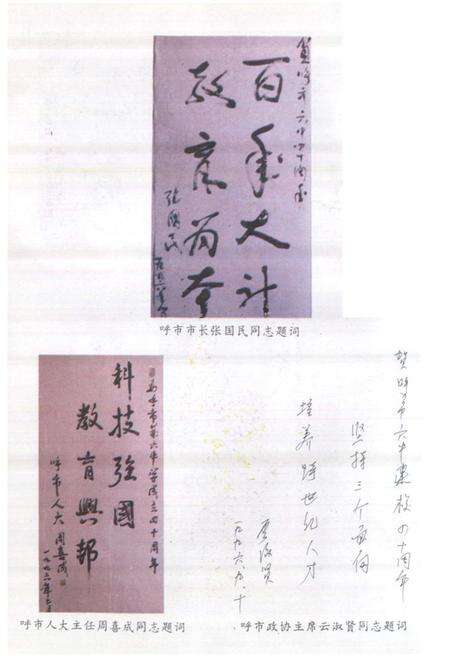 贺呼市六中四十周年
百年大计
教育为本
张国民
呼市市长张国民同志题词
为呼市第六中学成立四十周年
科技强国
教育兴邦
呼市人大 周喜成
一九九六年
呼市人大主任周喜成同志题词
贺呼市六中建校四十周年
坚持三个面向
培养跨世纪人才
云淑贤
一九九六.九.十
呼市政协主席云淑贤同志题词